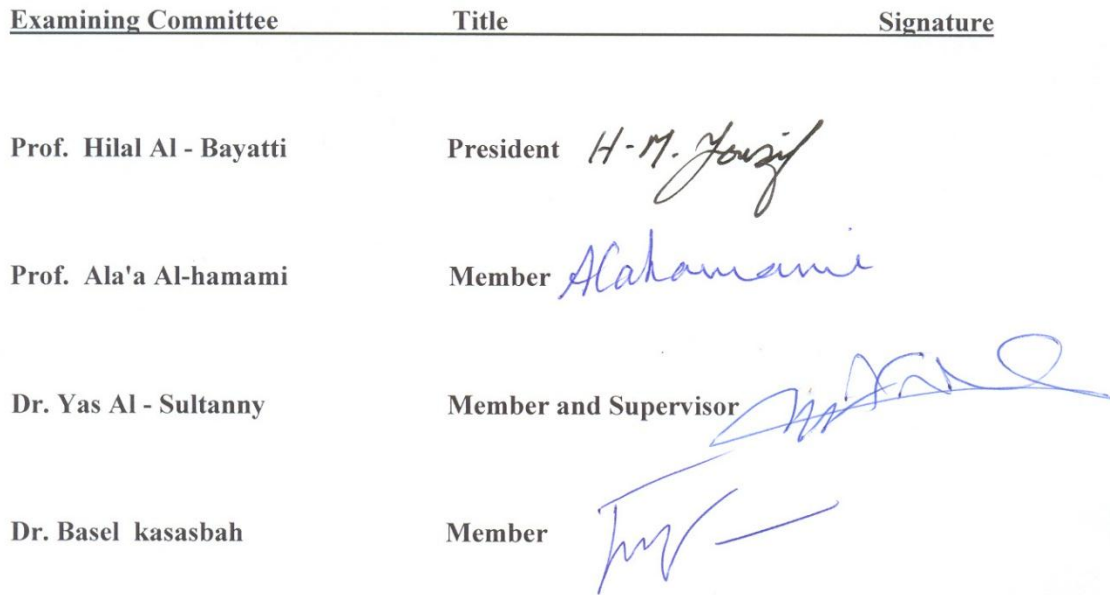 Examining Committee Title Signature
Prof. Hilal Al - Bayatti President H-M. Yousif
Prof. Ala'a Al-hamami Member
Dr. Yas Al - Sultanny Member and Supervisor
Dr. Basel kasasbah Member